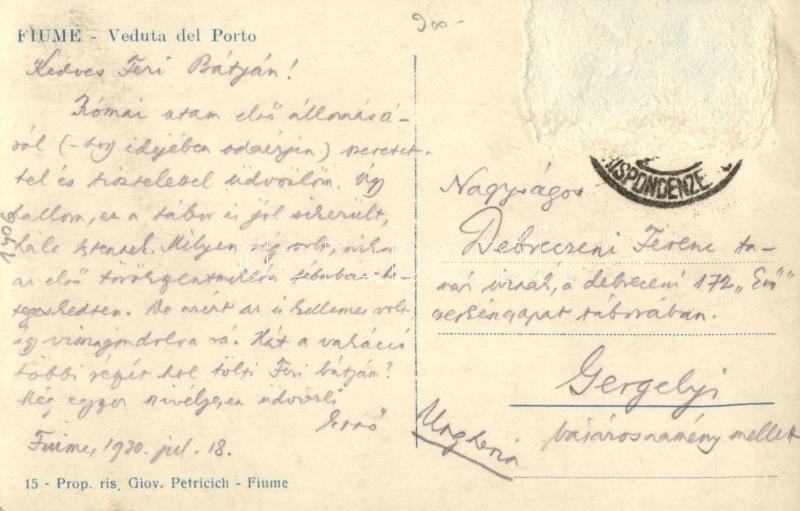 900-
FIUME - Veduta del Porto
Kedves Feri Bátyám!
Római utam első állomásá-
ról (- hogy idejében odaérjen) szeretet-
tel és tisztelettel üdvözlöm. Úgy
hallom, ez a tábor is jól sikerült,
hála Istennek. Milyen rég volt, mikor
az első törökszentmiklósi táborban be-
tegeskedtem. De azért az is kellemes volt,
így visszagondolva rá. Hát a vakáció
többi részét hol tölti Feri bátyám?
Még egyszer üdvözli
Ernő
Fiume, 1930. júl. 18.
15 - Prop. ris. Giov. Petricich - Fiume
RISPONDENZE
Nagyságos
Debreczeni Ferenc ta-
nár úrnak, a debreceni 172 „Erő"
cserkészcsapat táborában.
Gergelyi
Vásárosnamény mellett
Ungheria